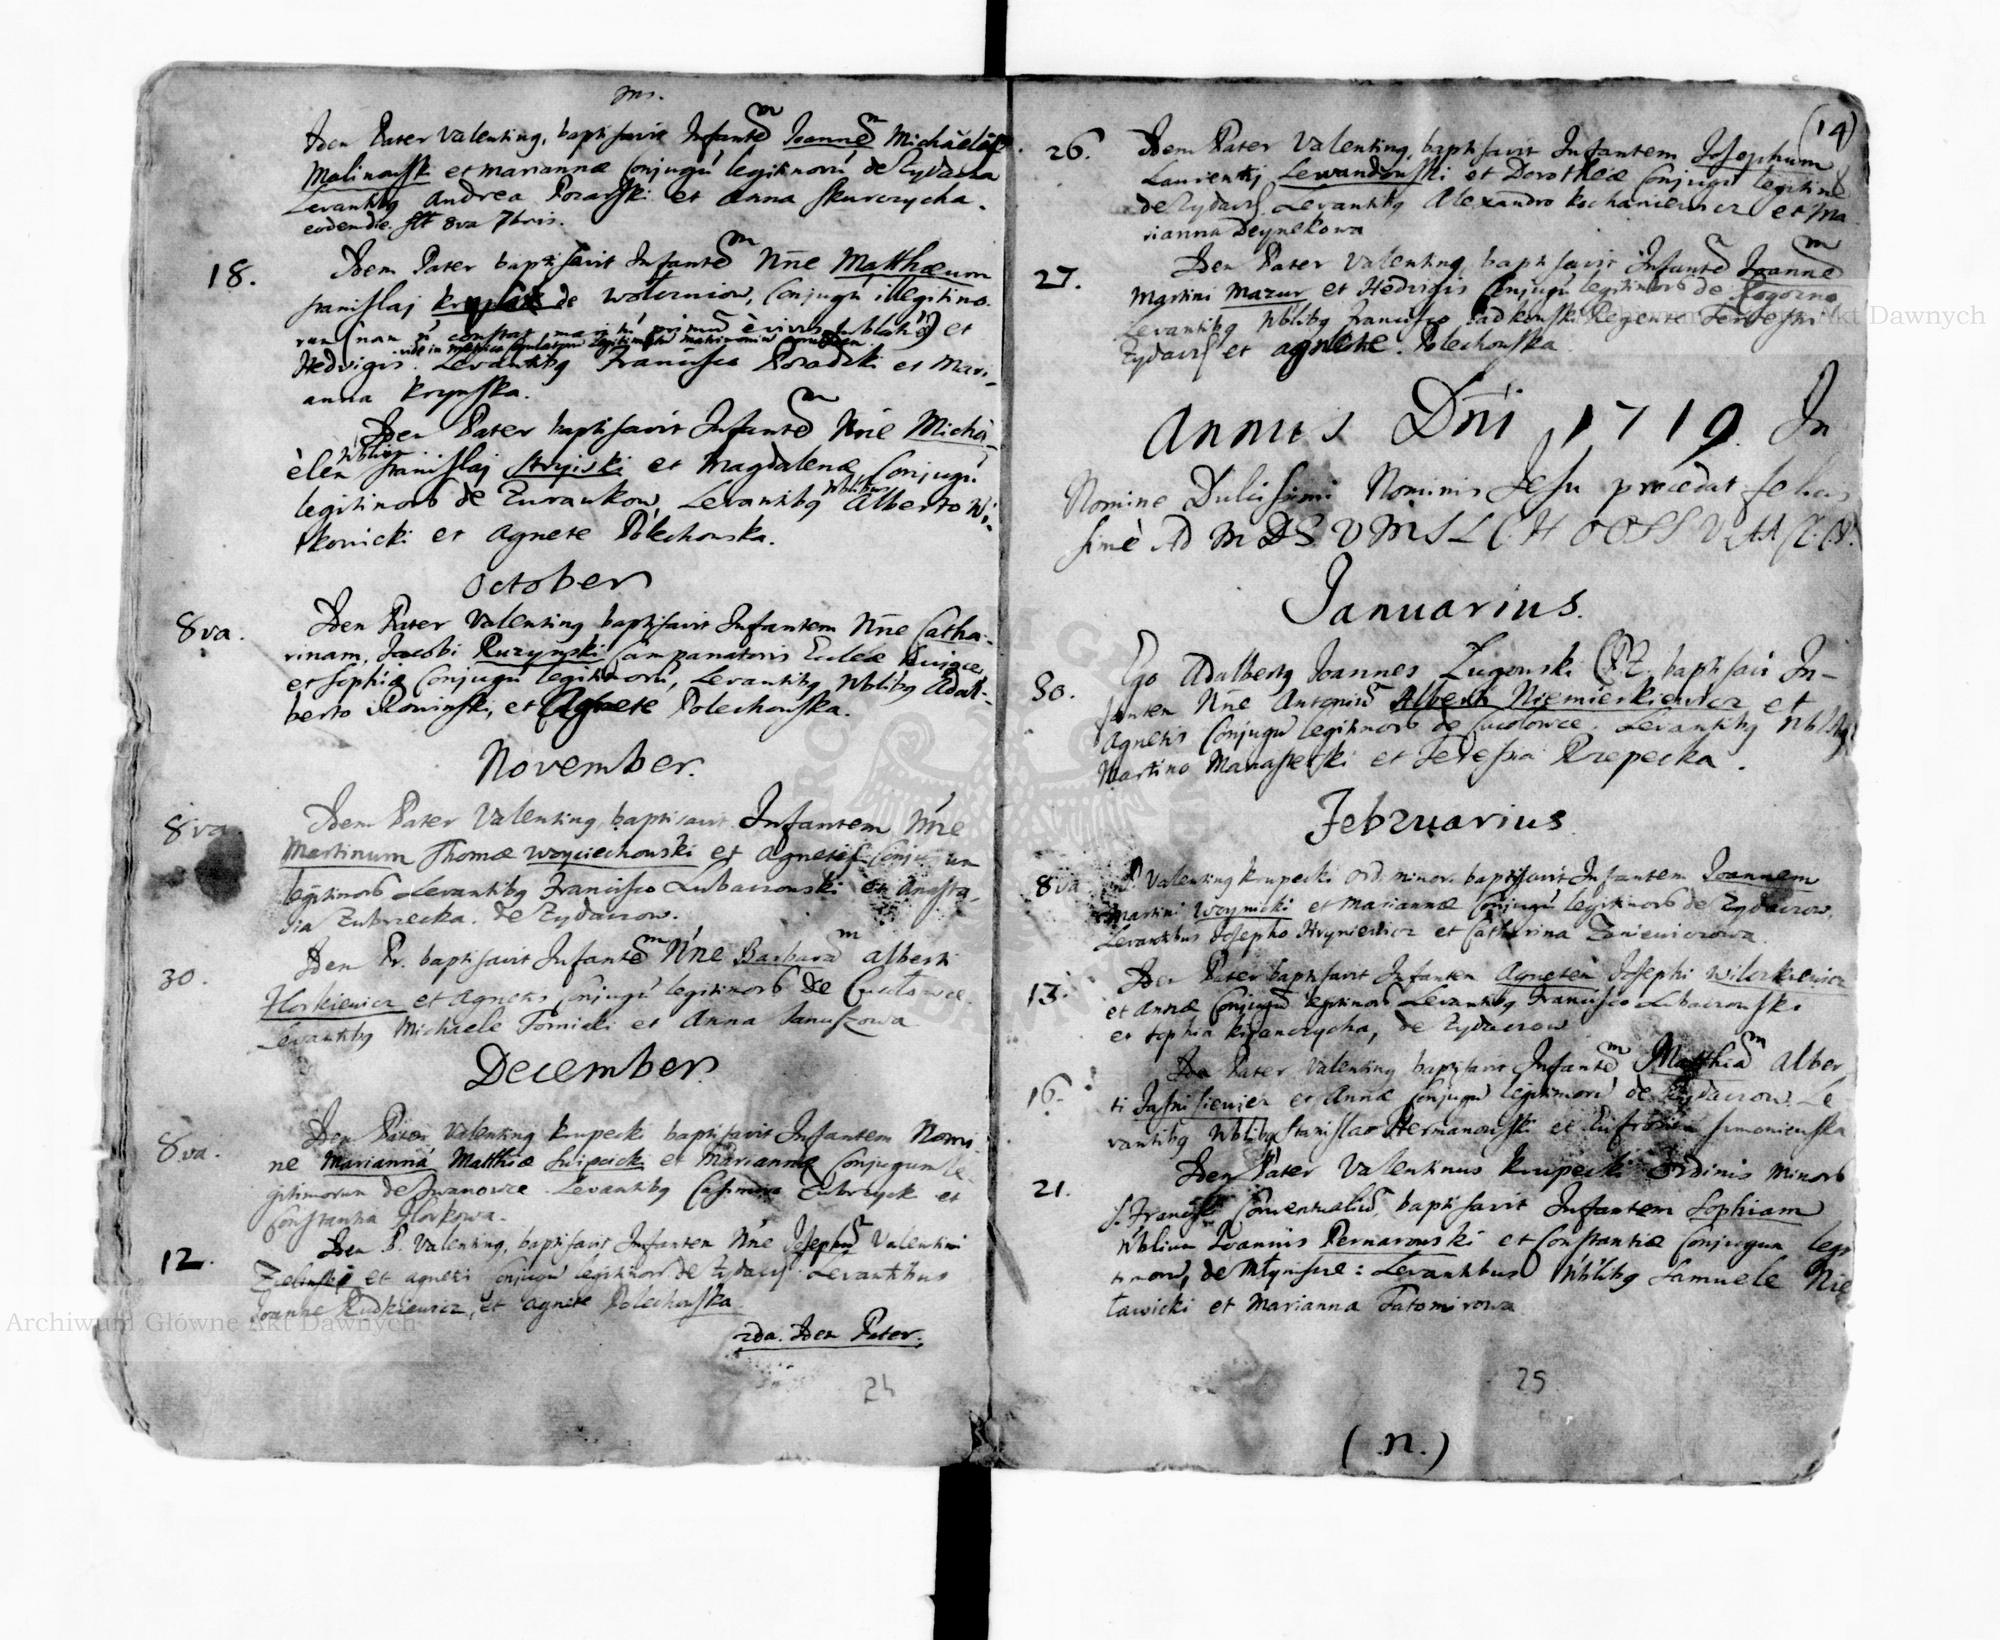 Idem Pater Valentinq, baptisavit Infantem Joannem Michaelis
Malinowski et Mariannæ Conjugū legitimorū de Zydaczow
Levantibq Andrea Pozarski et Anna Skurczycha.
eodem die. st 8va 7bris.
18. Idem Pater baptisavit Infantem Nñe Matthæum
Stanislaj de Woterniow, Conjugū illegitimo-
rum (non constat mariti primū è vivis sublatū) et
Hedvigis. Levantibq Francisco Poradzki et Mari-
anna Krynska.
Idem Pater baptisavit Infantem Nñe Michä-
èlem Nblium Stanislaj Stryiski et Magdalenæ Conjugū
legitimorũ de Zurawkow, Levantibq Nblibus Alberto Wi-
tkowicki et Agnete Polechowska.
October
8va. Idem Pater Valentinq baptisavit Infantem Nñe Catha-
rinam, Jacobi Ruzynski Campanatoris Ecclæ hujqce,
et Sophiæ Conjugū legitimorū, Levantibq Nblibq Adal-
berto Rowinski, et Agnete Polechowska.
November.
8va Idem Pater Valentinq baptisavit Infantem Nñe
Martinum Thomæ Woyciechowski et Agnetis Conjugum
legitimorũ Levantibq Francisco Lubaczowski et Anasta-
sia Zubrzecka. de Zydaczow.
30. Idem Pr. baptisavit Infantem Nñe Barbaram Alberti
Florkiewicz et Agnetis Conjugū legitimorũ de Cuculowce.
Levantibq Michaele Tornicki et Anna Januszowa
December.
8va. Idem Pater Valentinq Krupecki baptisavit Infantem Nomi
ne Mariannā Matthiæ Swipcicki et Mariannæ Conjugum le-
gitimorum de Jwanowce. Levantibq Casimiro Zubrzycki et
Constantia Florkowa.
12. Idem P. Valentinq, baptisavit Infantem Nñe Josephum Valentini
Zielinski et Agnetis Conjugū legitimorũ de Zydacz. Levantibus
Joanne Rudkiewicz, et Agnete Polechowska.
2da. Idem Pater.
24
(14)
26. Idem Pater Valentinq, baptisavit Infantem Josephum
Laurentij Lewandowski et Dorotheæ Conjugū legitim
de Zydacz. Levantibq Alexandro Kochaniewicz et Ma
rianna Deynekowa
27. Idem Pater Valentinq baptisavit Infantem Joannem
Martini Mazur et Hedvigis Conjugū legitimorũ de Rogozno
Levantibq Nblibq Francisco Sadkowski Regente
Zydacz et Agnete. Polechowska.
Annus Dñi 1719. In
Nomine Dulcissimi Nominis Jesu procedat felicis
simè
Januarius.
30. Ego Adalbertq Joannes Zugowski baptisavi In-
fantem Nñe Antonium Alberti Niemierkiewicz et
Agnetis Conjugū legitimorũ de Cucolowce. Levantibq Nblibq
Martino Manasterski et Teressia Rzepecka.
Februarius.
8va P. Valentinq Krupecki Ord. minor. baptisavit Infantem Joannem
Martini Woynicki et Mariannæ Conjugū legitimorũ de Zydaczow,
Levantibus Josepho Hryniewicz et Catharina Zaniewiczowa.
13. Idem Pater baptisavit Infantem Agnetem Josephi Wilczkiewicz
et Annæ Conjugū legitimorũ Levantibq Francisco Lubaczowski
et Sophia Kijanczycha, de Zydaczow
16. Idem Pater Valentinq baptisavit Infantem Matthiam Alber
ti Jasnisiewicz et Annæ Conjugū legitimorū de Zydaczow. Le
vantibq Nblibq Stanislao Hermanowski et Eufrosina Simonienska
21. Idem Pater Valentinus Krupecki Ordinis Minorũ
S. Francisci Conventualiū, baptisavit Infantem Sophiam
Nblium Joannis Bernarowski et Constantiæ Conjugum legi
timorũ, de Młyniscze: Levantibus Nblibq Samuele Nie
ławicki et Marianna Tatomirowa
25
(n.)
Archiwum Główne Akt Dawnych
Archiwum Główne Akt Dawnych